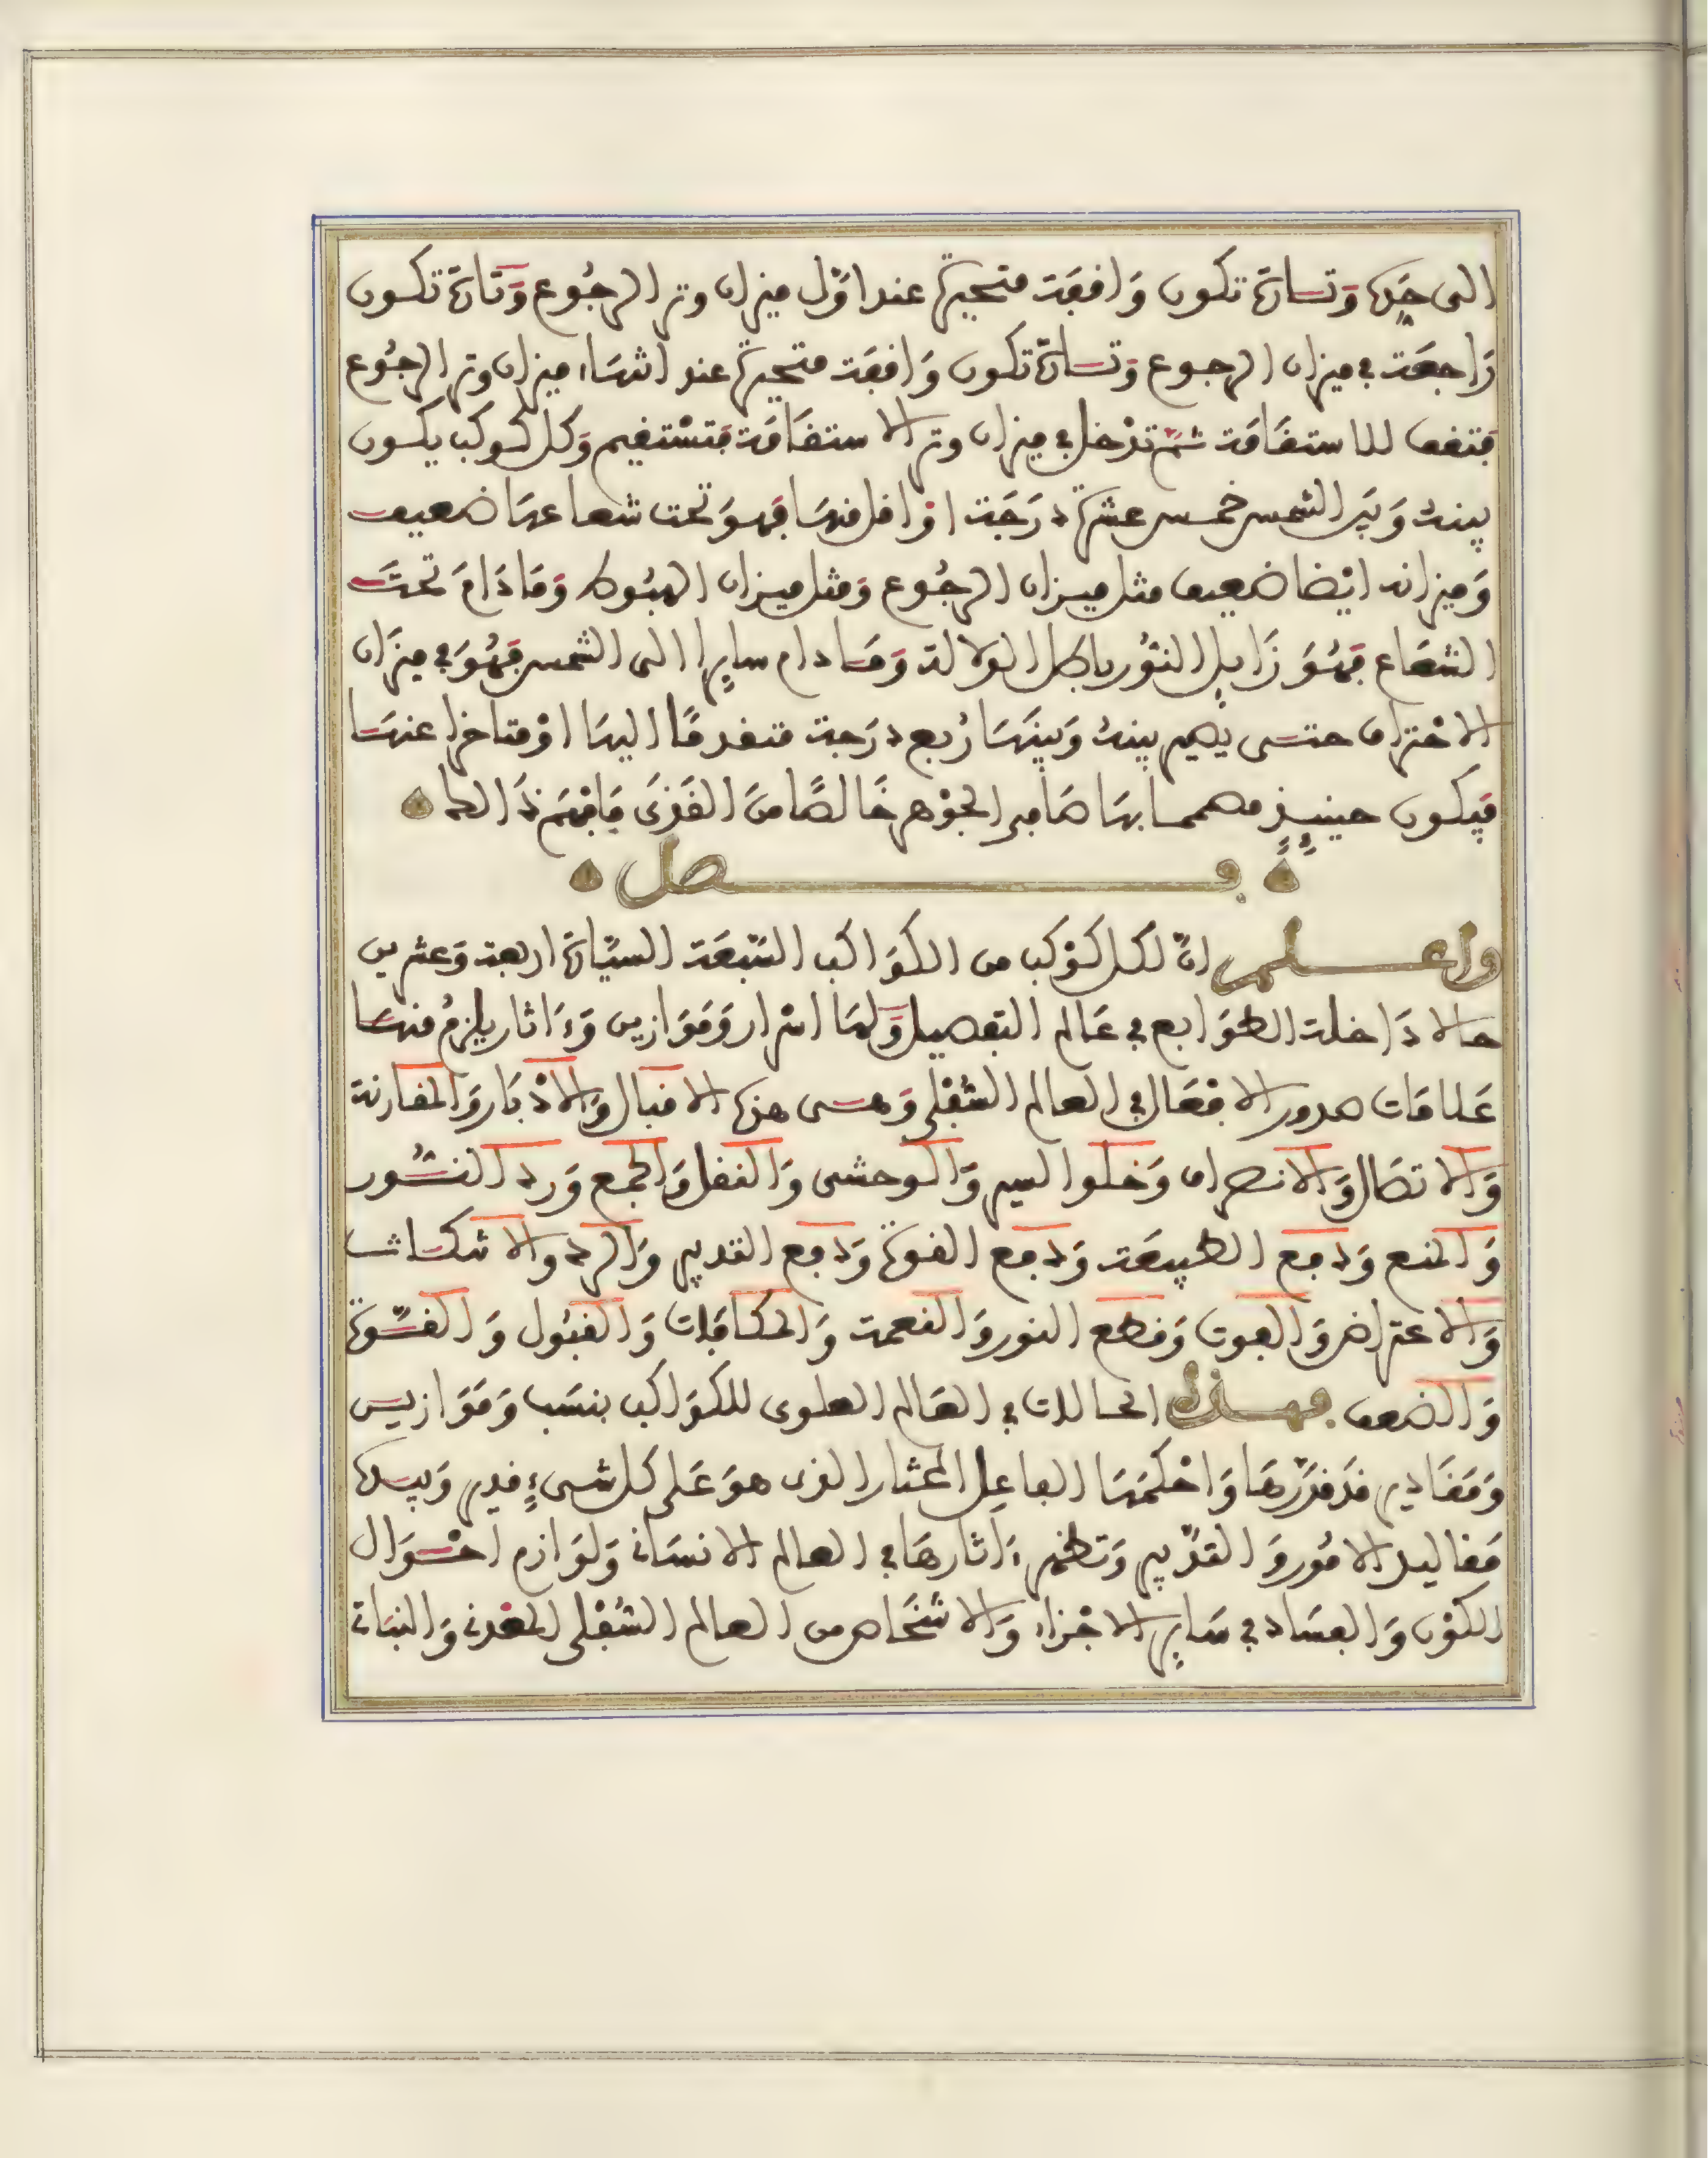 الى حَدِّهَا وَتَارَةً تكون وَاقِفَة متحيرةً عند اوَّل ميزان وتر الرجُوع وَتَارَةً تكون
رَاجعَة في ميزان الرجوع وَتَارَةً تكون وَاقفَة متحيرةً عند انتهَاء ميزان وتر الرجُوع
فتقف للاستقَامَة ثمَّ تدْخل في ميزان وتر الاستقَامَة فتسْتقيم وَكل كوكب يكون
بينهُ وَبيْن الشمس خمس عشرةَ درَجَة اوْ اقل منهَا فهوَ تحت شعاعهَا ضعيف
وَميزانه ايْضا ضعيف مثل ميزان الرجُوع وَمثل ميزان الهبُوط وَمَا دَامَ تحتَ
الشعَاع فهُوَ زَايل النُور باطل الدلالة وَمَا دام سايرا الى الشمس فهُوَ في ميزَان
الاحْتراق حتى يصير بينهُ وَبينهَا رُبع درَجة متقدمًا اليهَا اوْ متاخرا عنهَا
فيَكون حينيذٍ مصمما بها صَابر الجوْهر خَالصًا منَ القَذَى فَافهَم ذَالك
فصل
واعلم انّ لكل كوْكب من الكوَاكب السّبعَة السيّارَة اربعة وَعشرين
حالا دَاخلة الطوَابع في عَالم التفصيل وَلهَا اسْرار وَمَوَازين وَءَاثار يلزمُ منهَا
عَلامَات صدور الافْعَال في العالم السُّفْلي وَهى هذه الاقبال وَالادْبَار وَالمقارنة
وَالاتصَال وَالانصراف وَخلوا السير وَالوحشى وَالنقل وَالجمع وَرد النُّور
وَالمنع وَدفع الطبيعَة وَدفع القوة وَدفع التدبير وَالرد والانتكاث
وَالاعتراض وَالفوت وَقطع النور وَالنعمة وَالمكافات وَالقبُول وَالقُوّة
وَالضعف فهذه الحالات في العَالم العلوى للكوَاكب بنسَب وَمَوَازين
وَمَقَادير قدْ قدَّرهَا وَاحْكمَهَا الفاعِل المختار الذى هوَ عَلى كل شىءٍ قدير وَبيده
مَقاليد الامُور وَالتدْبير وَتظهر ءَاثارهَا في العالم الانسَاني وَلوَازم احْوَال
الكوْن وَالفسَاد في سَاير الاجْزاء وَالاشخَاص من العالم السُّفْلي المعْدني وَالنبَاتي